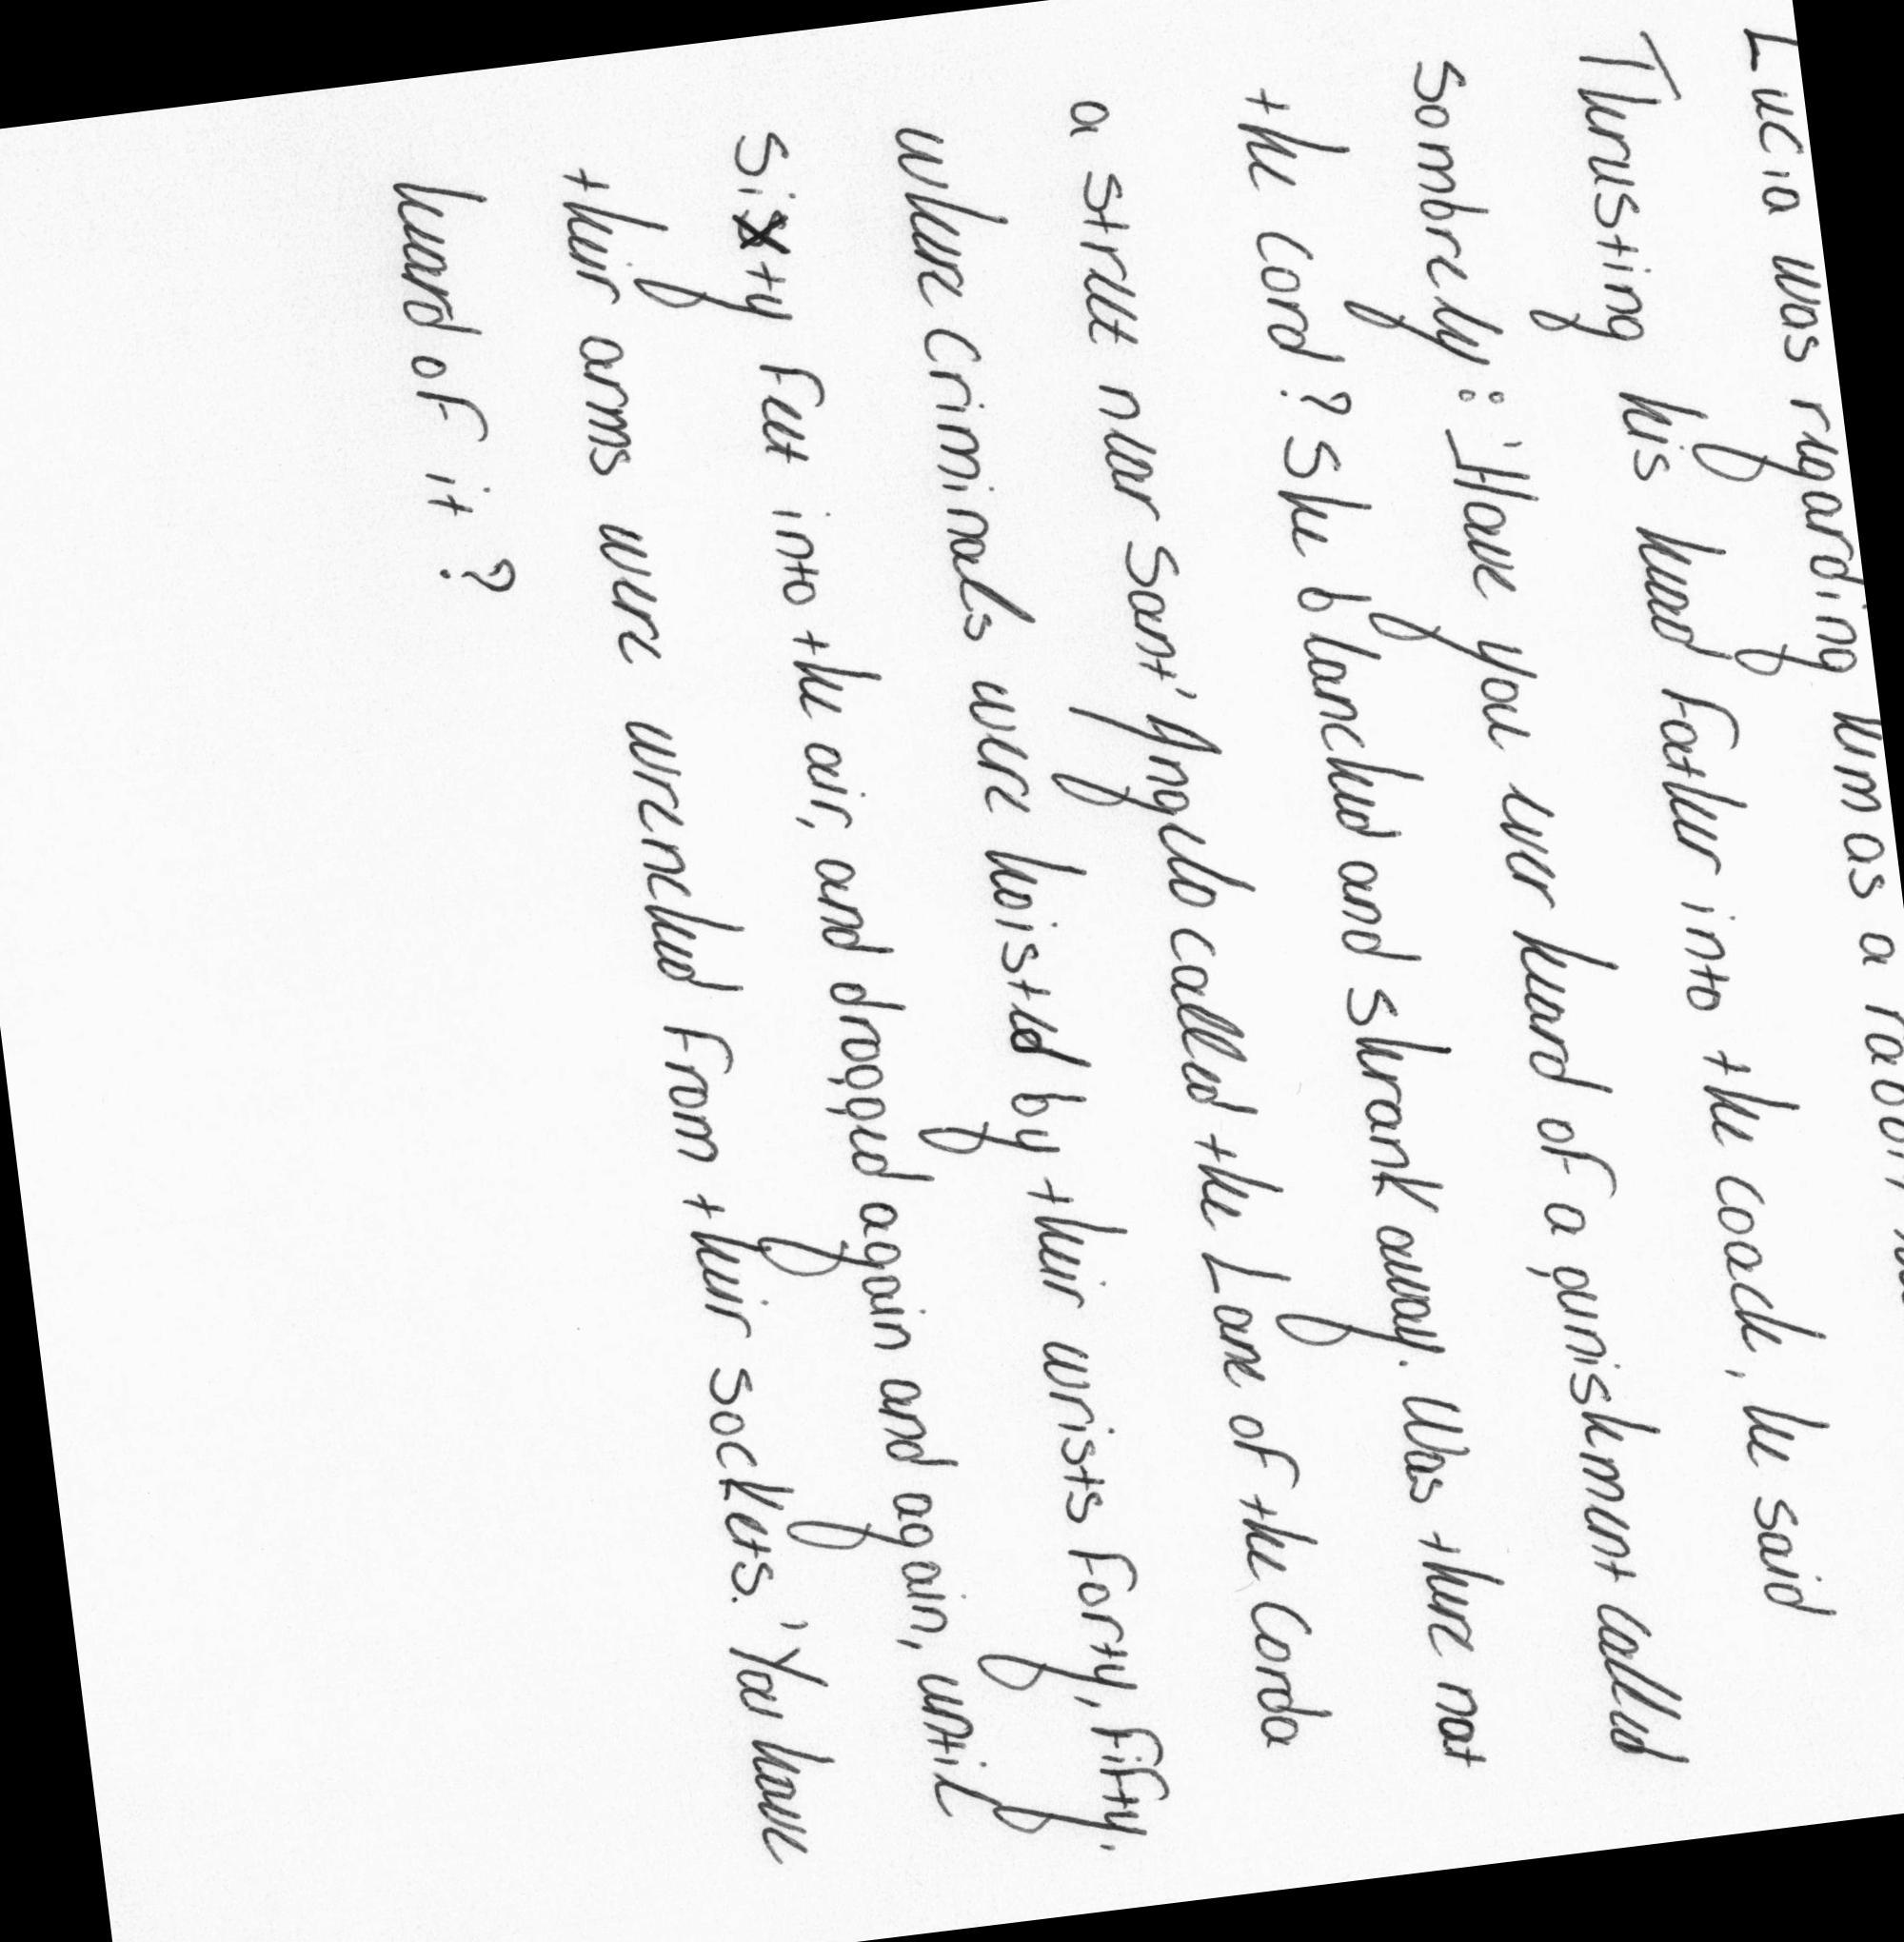 Lucia was regarding him as a
Thrusting his head father into the coach, he said
sombrely: 'Have you ever heard of a punishment called
the cord? She blanched and shrank away. Was there not
a street near Sant' Angelo called the Lane of the Corda
where criminals were hoisted by their wrists forty, fifty.
sixty feet into the air, and dropped again and again, until
their arms were wrenched from their sockets. 'You have
heard of it?